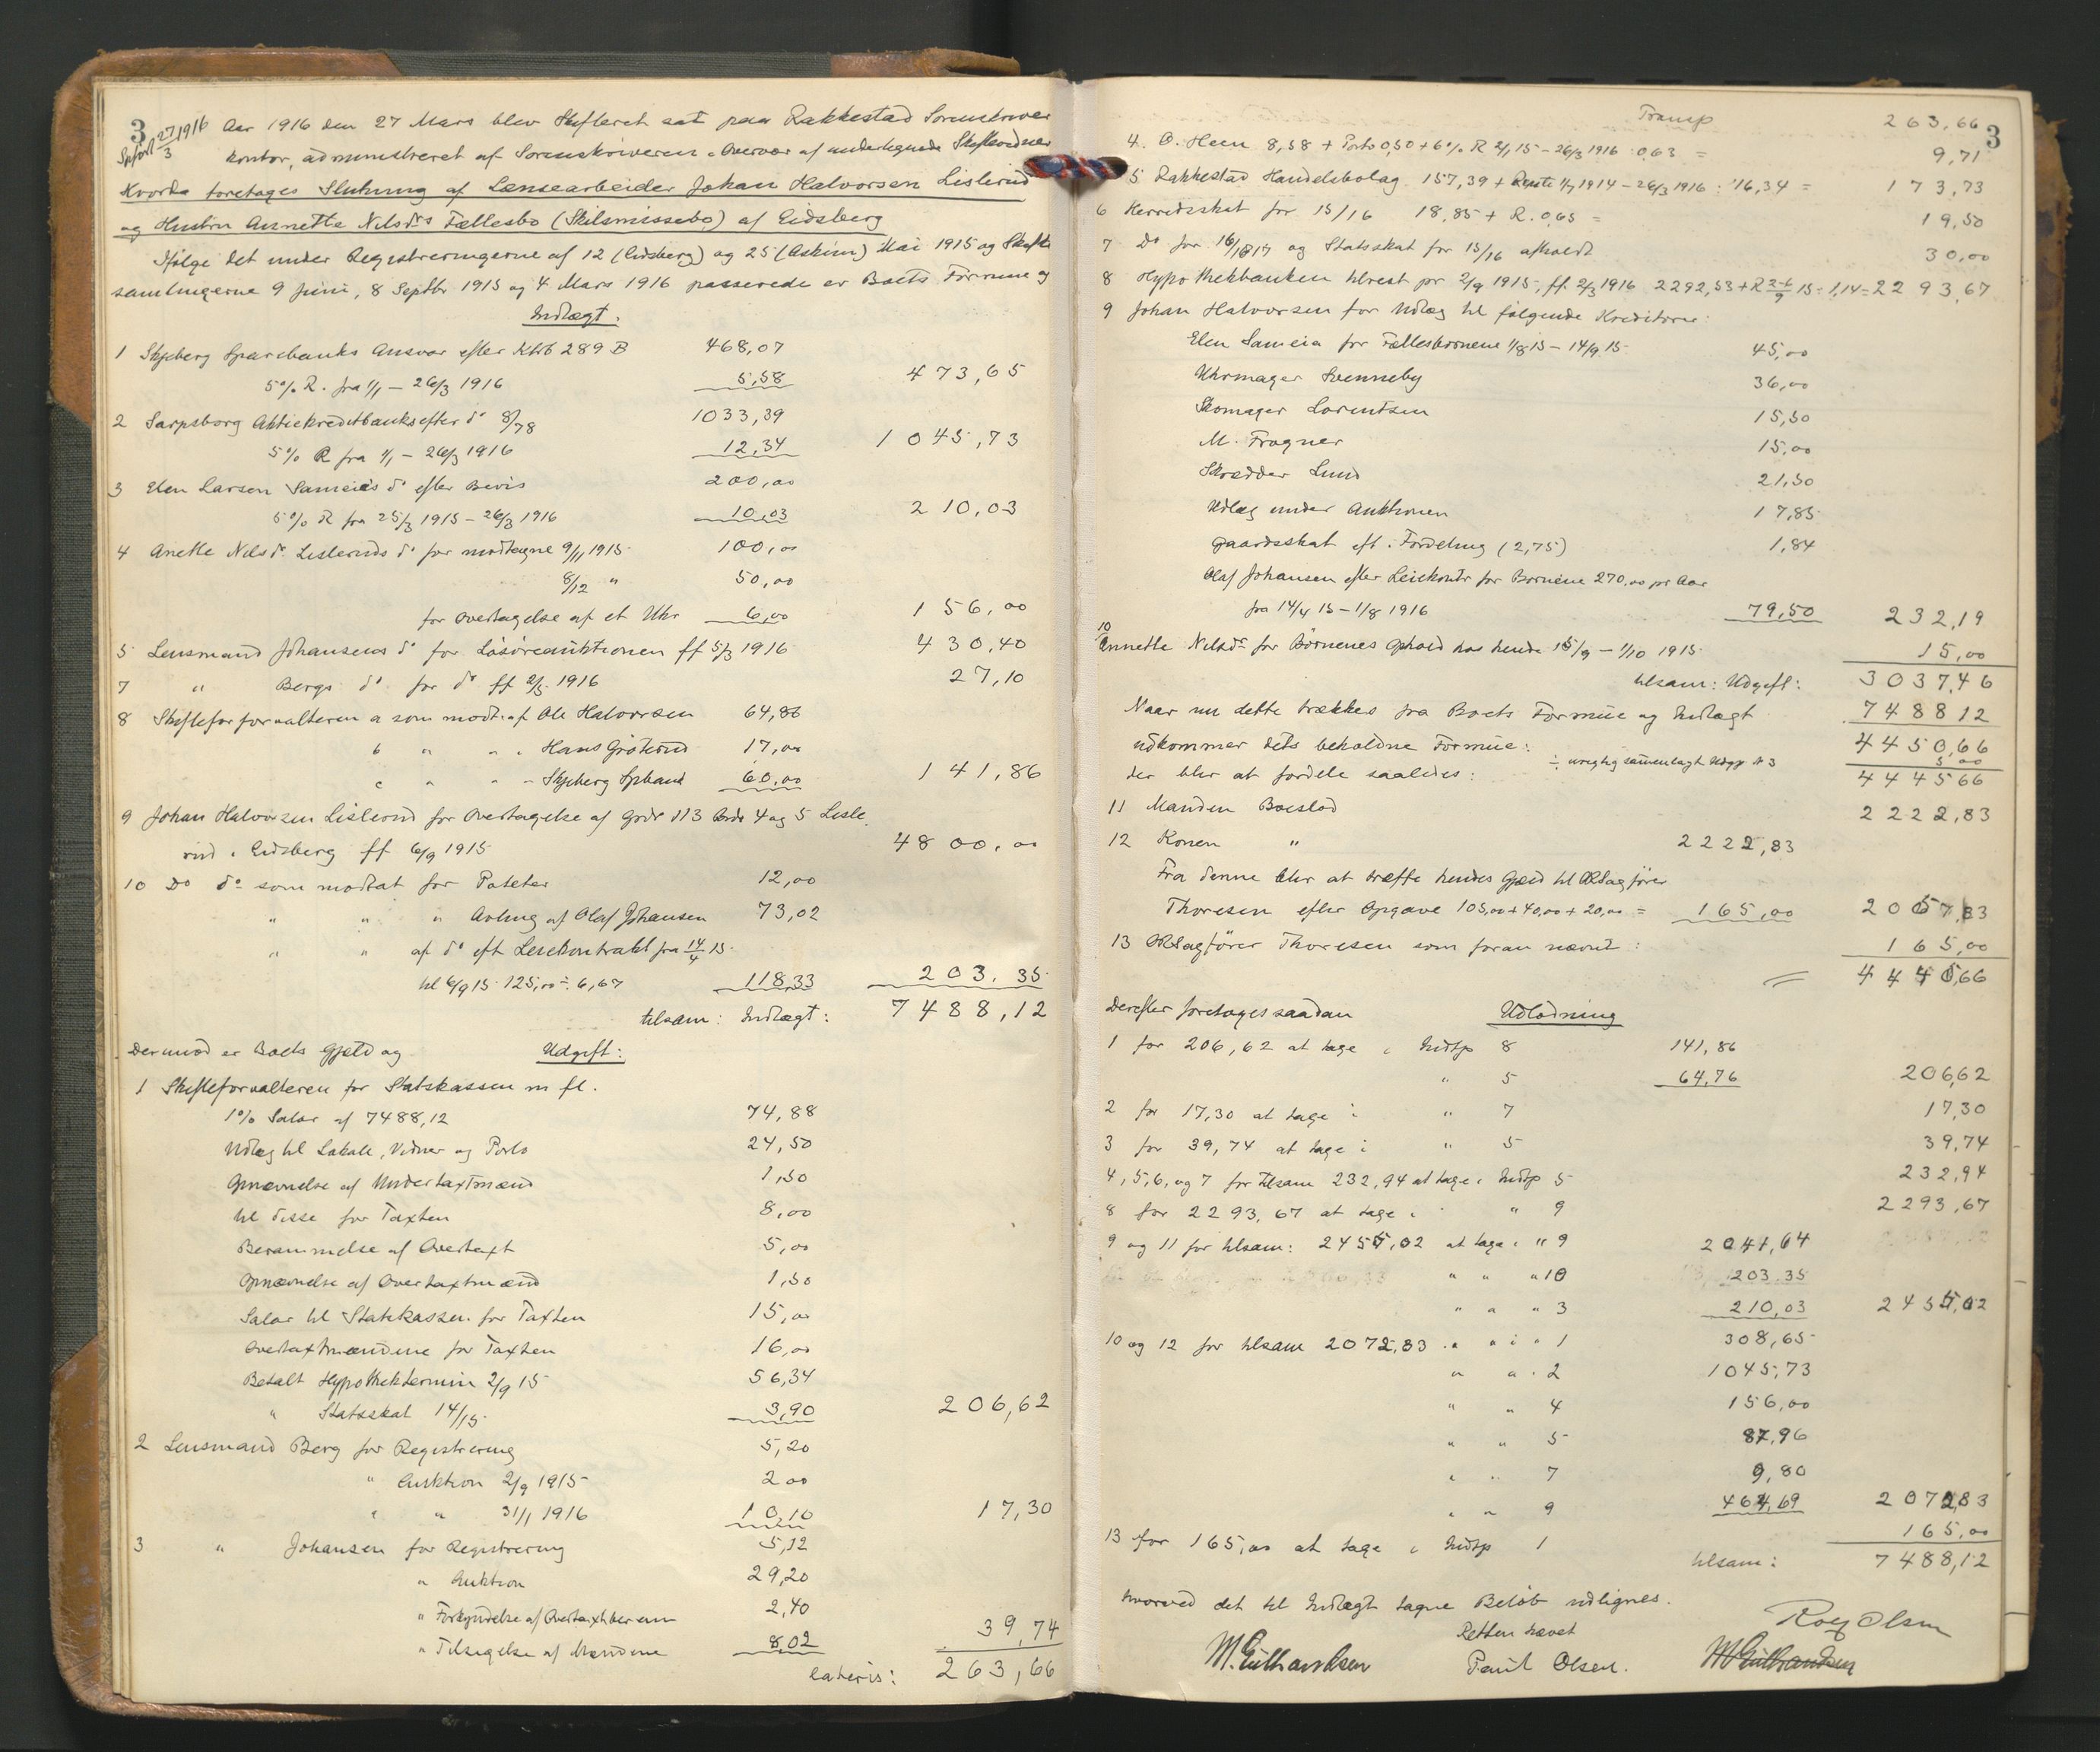 3
27/3 1916
Aar 1916 den 27 Mars blev Skifteret sat paa Rakkestad Sorenskriver
kontor, administreret af Sorenskriveren i Overvær af undertegnede Skiftevidner
Hvorda foretages Slutning af Lensearbeider Johan Halvorsen Lislerud
og Hustru Annette Nilsdrs Fællesbo (Skilsmissebo) af Eidsberg
Ifølge det under Registreringerne af 12 (Eidsberg) og 25 (Askim) Mai 1915 og Skifte
samlingerne 9 Juni, 8 Septbr 1915 og 4 Mars 1916 passerede er Boets Formue og
Indtægt:
1 Skjeberg Sparebanks Ansvar efter Ktrb 289 B 468,07
5% R. fra 1/1 – 26/3 1916 5,58 473,65
2 Sarpsborg Aktiekreditbanks efter do 8/78 1033,39
5% R fra 1/1 – 26/3 1916 12,34 1045,73
3 Elen Larsen Sameies do efter Bevis 200,00
5% R fra 25/3 1915 – 26/3 1916 10,03 210,03
4 Anette Nilsdr. Lisleruds do for modtagne 9/11 1915 100,00
8/12 " 50,00
for Overtagelse af et Uhr 6,00 156,00
5 Lensmand Johansens do for Løsøreauktionen ff 5/3 1916 430,40
7 " Bergs do for do ff 2/5 1916 27,10
8 Skifteforvalteren a som modt. af Ole Halvorsen 64,86
b " " " Hans Grøterud 17,00
c " " " Skjeberg Spbank 60,00 141,86
9 Johan Halvorsen Lislerud for Overtagelse af Grdr 113 Brdr 4 og 5 Lisle
rud i Eidsberg ff 6/9 1915 4800,00
10 Do do som modtat for Poteter 12,00
" " " Avling af Olaf Johansen 73,02
" " af do eft Leiekontrakt fra 14/4 15
til 6/9 15 125,00 ÷ 6,67 118,33 203,35
tilsam: Indtægt: 7488,12
Dermod er Boets Gjæld og Udgift:
1 Skifteforvalteren for Statskassen m fl.
1% Salær af 7488,12 74,88
Udlæg til Lokale, Vidner og Porto 24,50
Opnævnelse af Undertaxtmænd 1,50
til disse for Taxten 8,00
Berammelse af Overtaxt 5,00
Opnævnelse af Overtaxtmænd 1,50
Salær til Statskassen for Taxten 15,00
Overtaxtmændene for Taxten 16,00
Betalt Hypothektermin 2/9 15 56,34
" Statsskat 14/15 3,90 206,62
2 Lensmand Berg for Registrering 5,20
" Auktion 2/9 1915 2 00
" " 31/1 1916 10,10 17,30
3 " Johansen for Registrering 5,12
" Auktion 29,20
" Forkyndelse af Overtaxtberam 2,40
" Tilsigelse af Mændene 8,02 39,74
lateris: 263,66
3
Transp 263,66
4. O. Heen 8,58 + Porto 0,50 + 6% R 2/1 15 – 26/3 1916 0,63 = 9,71
5 Rakkestad Handelsbolag 157,39 + Rente 1/7 1914 – 26/3 1916: 16,34 = 173,73
6 Herredsskat for 15/16 18,85 + R. 0,65 = 19,50
7 Do for 16/17 og Statsskat for 15/16 afholdt 30,00
8 Hypothekbanken tilrest pr 2/9 1915, ff 2/3 1916 2292,53 + R 2-6/9 15 = 1,14 = 2293,67
9 Johan Halvorsen for Udlæg til følgende Kreditorer:
Elen Sameia for Fællesbørnene 1/8 15 – 14/9 15 45,00
Uhrmager Svenneby 36,00
Skomager Lorentsen 15,50
M. Fragner 15,00
Skrædder Lund 21,50
Udlæg under Auktionen 17,85
Gaardsskat eft. Fordeling (2,75) 1,84
Olaf Johansen efter Leiekontr for Børnene 270,00 pr Aar
fra 14/4 15 – 1/8 1916 79,50 232,19
10 Annette Nilsdr for Børnenes Ophold hos hende 15/9 – 1/10 1915 15,00
tilsam: Udgift: 3037,46
Naar nu dette trækkes fra Boets Formue og Indtægt 7488 12
udkommer dets beholdne Formue: 4450,66
÷ urigtig sammenlagt Udgp. N 3 5 00
der blir at fordele saaledes: 4445 66
11 Manden Boeslod 2222,83
12 Konen " 2222,83
Fra denne blir at træffe hendes Gjæld til ORSagfører
Thoresen efter Opgave 105,00 + 40,00 + 20,00 = 165,00 2057,83
13 ORSagfører Thoresen som foran nævnt: 165,00
4445,66
Derefter foretages saadan Udlodning
1 for 206,62 at tage i Indtp 8 141,86
" 5 64,76 206,62
2 for 17,30 at tage i " 7 17,30
3 for 39,74 at tage i " 5 39,74
4, 5, 6, og 7 for tilsam 232,94 at tage i Indtp 5 232,94
8 for 2293,67 at tage i " 9 2293,67
9 og 11 for tilsam: 2455,02 at tage i " 9 2041,64
" " " 10 203.35
" " " 3 210,03 2455,02
10 og 12 for tilsam 2072,83 " " i " 1 308,65
" " 2 1045,73
" " 4 156,00
" " 5 87,96
" " 7 9,80
" " 9 464,69 2072,83
13 for 165,00 at tage i Indtp 1 165,00
tilsam: 7488,12
hvorved det til Indtægt tagne Beløb udlignes.
Retten hævet
Rolf Olsen
M. Gulbrandsen Paul Olsen. M Gulbrandsen